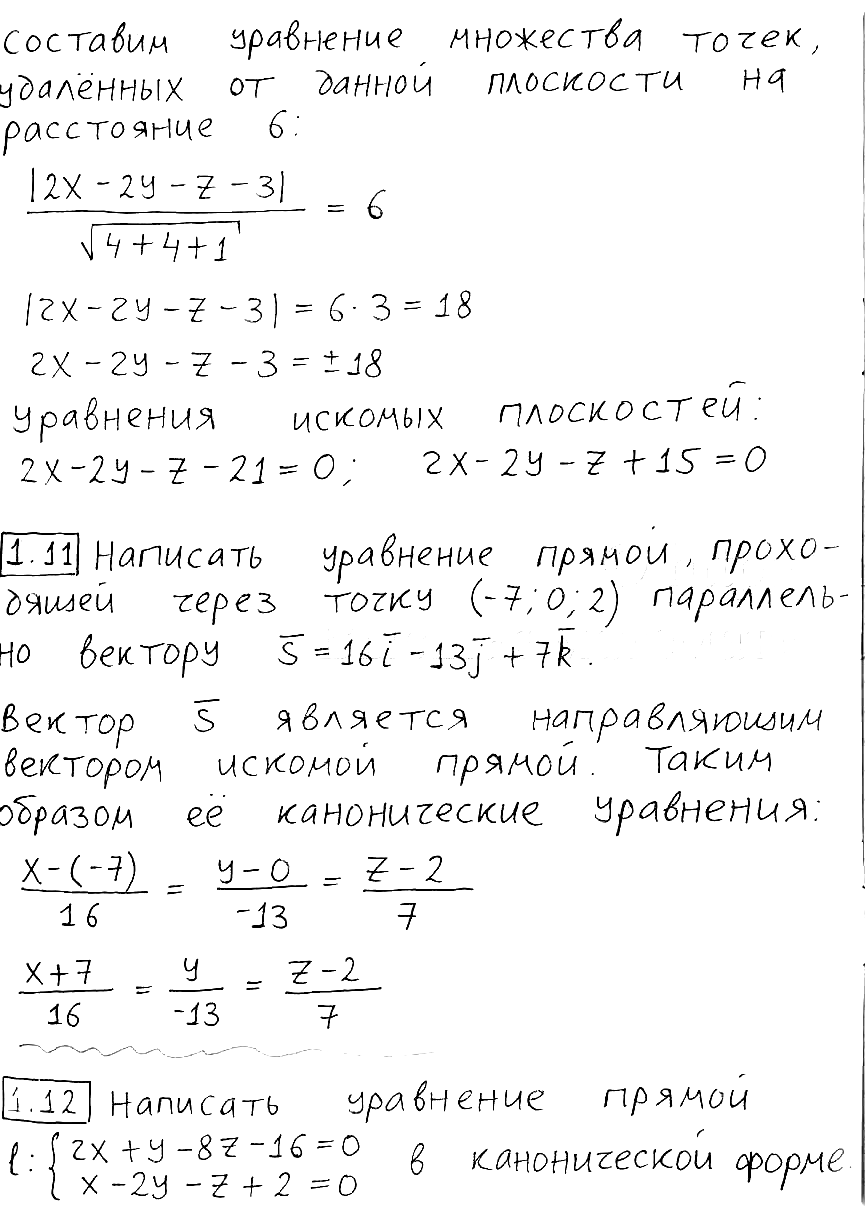 составим уравнение множества точек,
удалённых от данной плоскости на
расстояние 6:
|2x - 2y - z - 3| / √(4+4+1) = 6
|2x - 2y - z - 3| = 6 · 3 = 18
2x - 2y - z - 3 = ±18
уравнения искомых плоскостей:
2x - 2y - z - 21 = 0; 2x - 2y - z + 15 = 0
1.11 Написать уравнение прямой, прохо-
дящей через точку (-7; 0; 2) параллель-
но вектору s̄ = 16ī - 13j̄ + 7k̄.
Вектор s̄ является направляющим
вектором искомой прямой. Таким
образом её канонические уравнения:
(x-(-7))/16 = (y-0)/-13 = (z-2)/7
(x+7)/16 = y/-13 = (z-2)/7
1.12 Написать уравнение прямой
l: { 2x + y - 8z - 16 = 0 в канонической форме.
x - 2y - z + 2 = 0